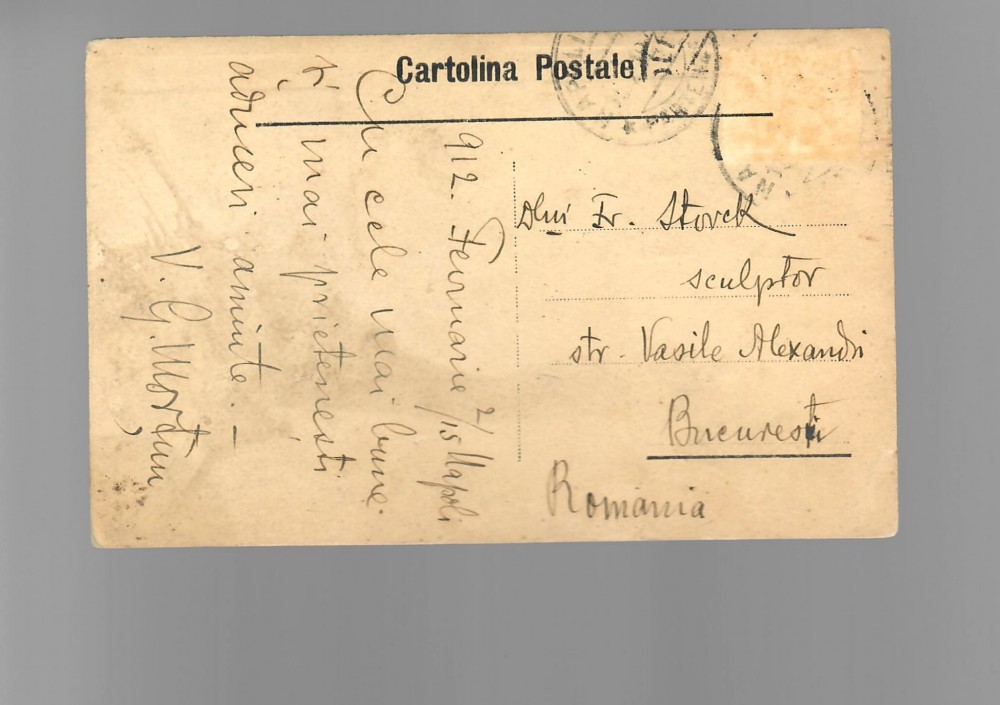 Cartolina Postale
912. Fevruarie 2/15 Napoli
Cu cele mai bune
și mai prietenești
aduceri aminte. –
V. G. Morțun
Dlui Fr. Storck
sculptor
str. Vasile Alexandri
București
Romania